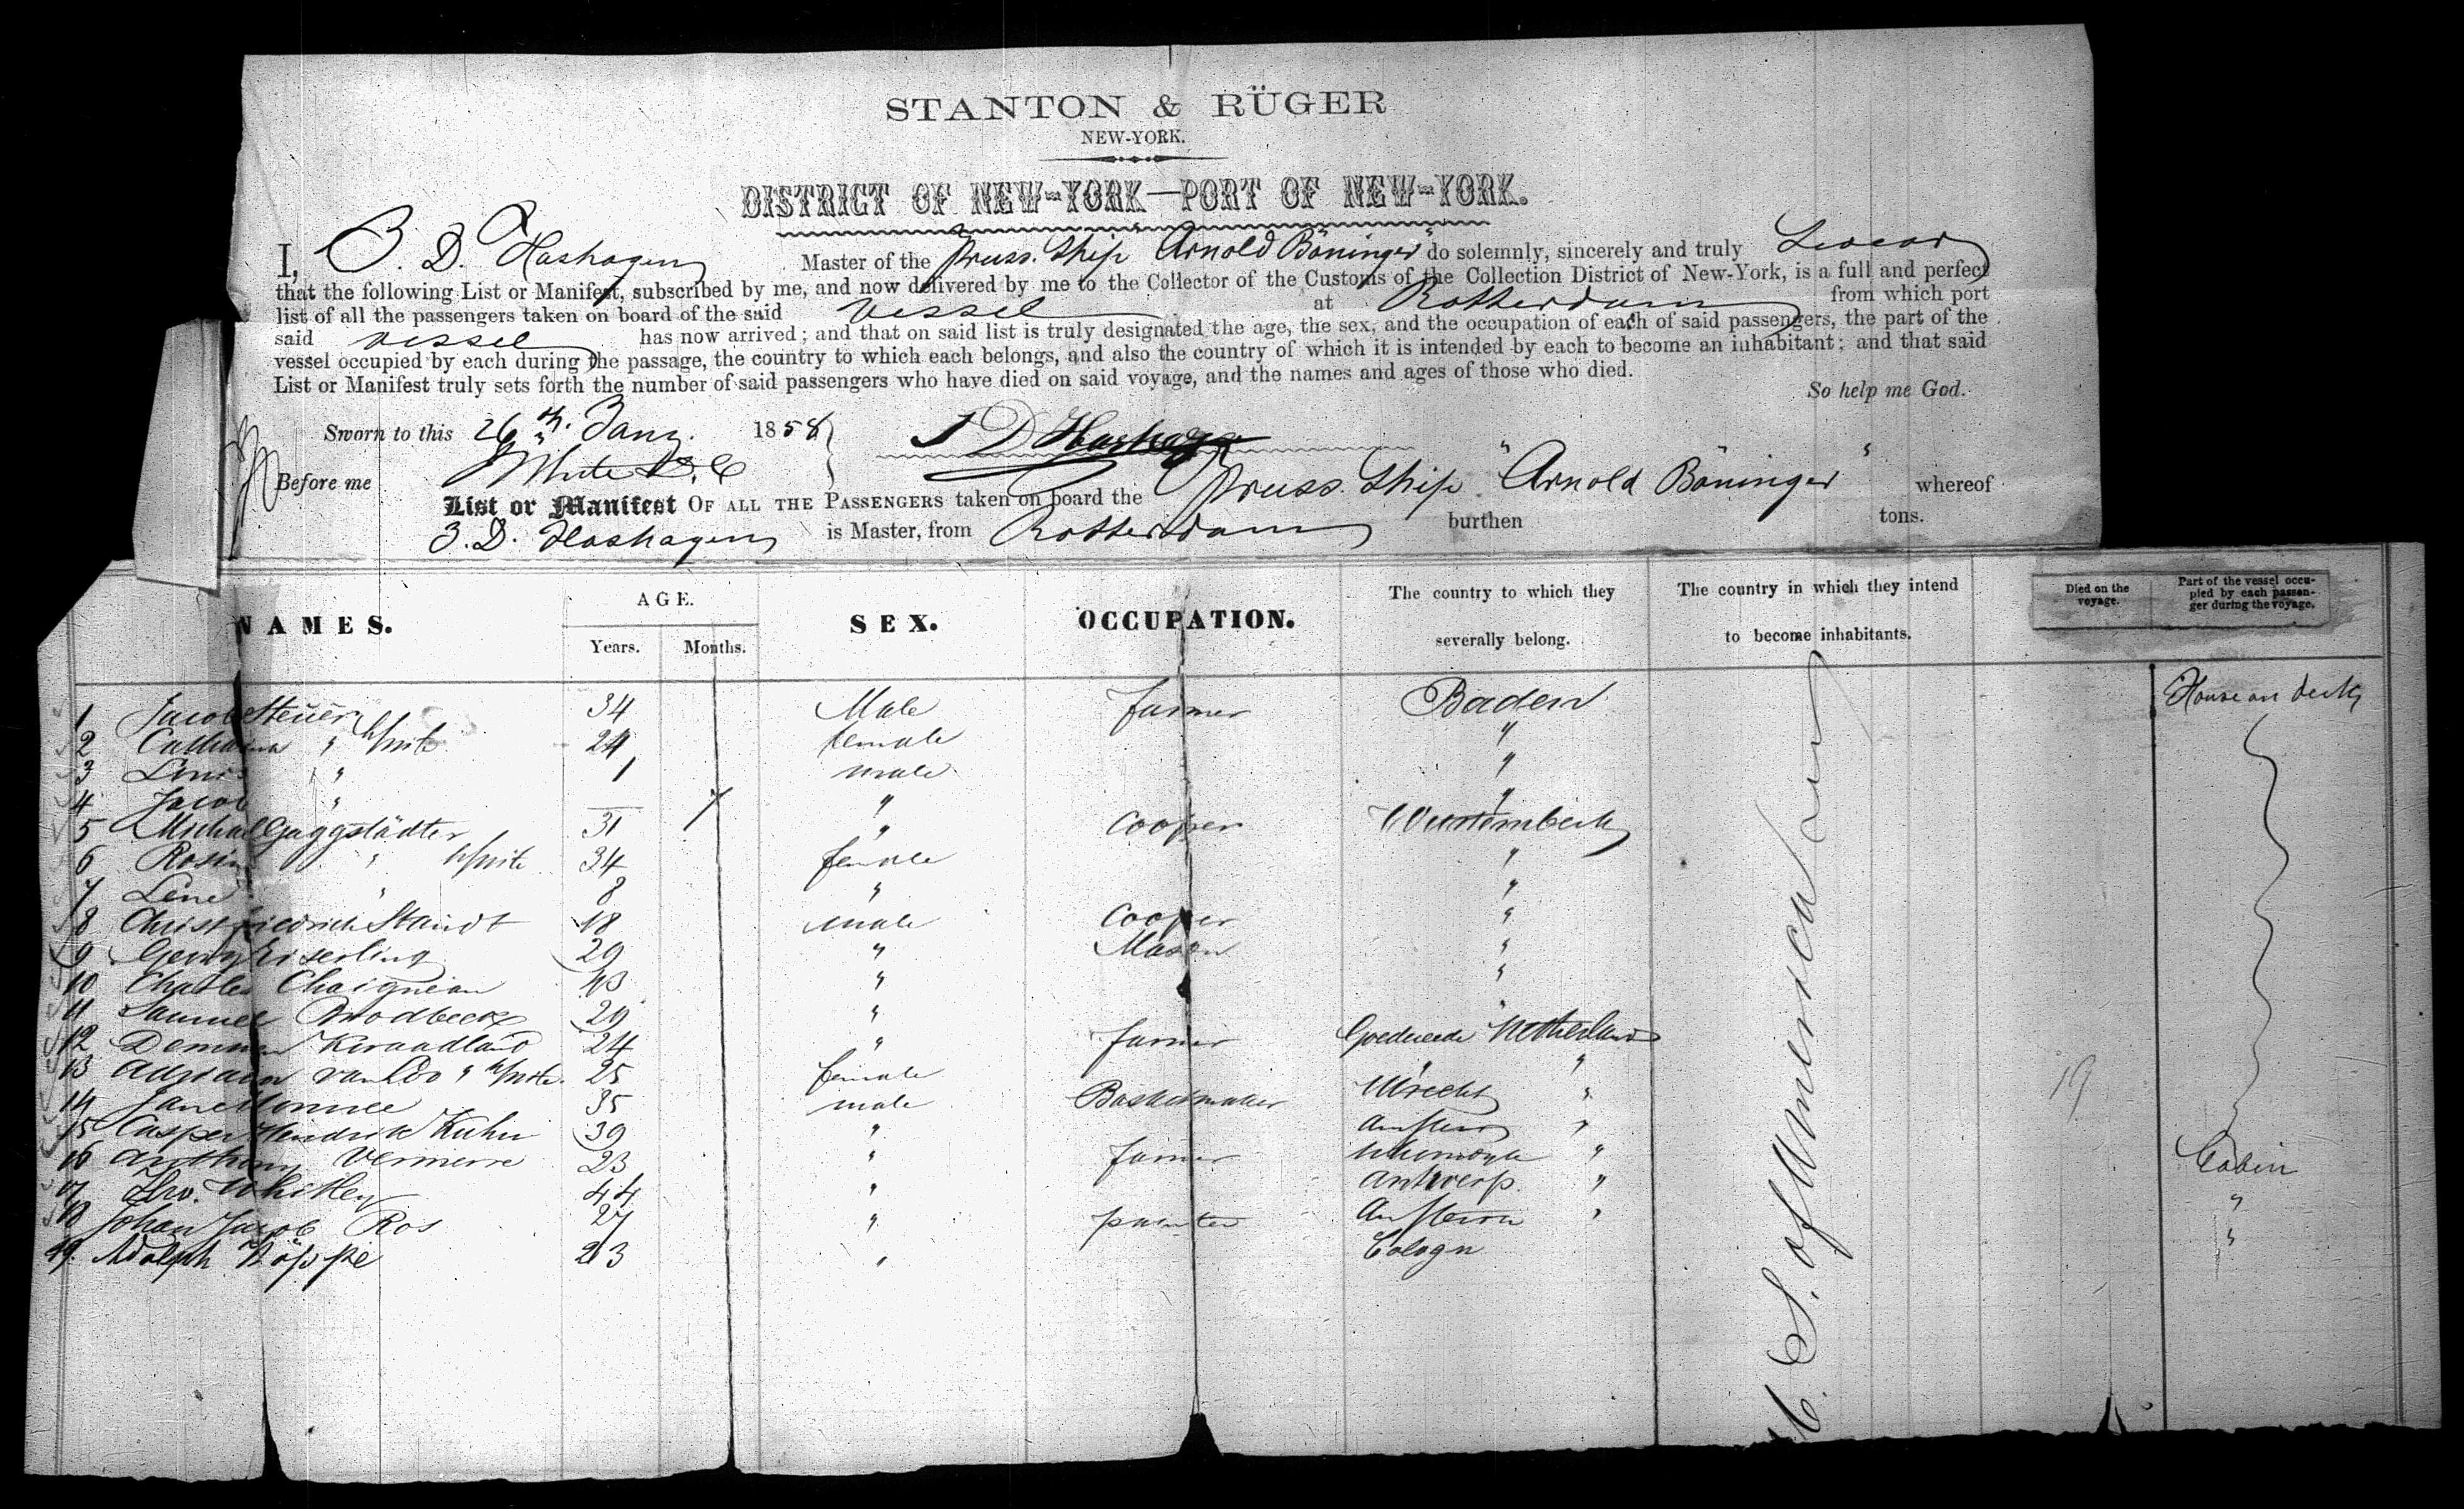 STANTON & RÜGER
NEW-YORK.
DISTRICT OF NEW-YORK—PORT OF NEW-YORK.
I, J. D. Hashagen Master of the Pruss. Ship "Arnold Böninger" do solemnly, sincerely and truly swear
that the following List or Manifest, subscribed by me, and now delivered by me to the Collector of the Customs of the Collection District of New-York, is a full and perfect
list of all the passengers taken on board of the said vessel at Rotterdam from which port
said vessel has now arrived; and that on said list is truly designated the age, the sex, and the occupation of each of said passengers, the part of the
vessel occupied by each during the passage, the country to which each belongs, and also the country of which it is intended by each to become an inhabitant; and that said
List or Manifest truly sets forth the number of said passengers who have died on said voyage, and the names and ages of those who died.
So help me God.
Sworn to this 26th. Jany. 1858 J D Hashagen
Before me White D. C
List or Manifest OF ALL THE PASSENGERS taken on board the Pruss. Ship "Arnold Böninger" whereof
J. D. Hashagen is Master, from Rotterdam burthen tons.
NAMES. AGE. Years. Months. SEX. OCCUPATION. The country to which they severally belong. The country in which they intend to become inhabitants. Died on the voyage. Part of the vessel occupied by each passenger during the voyage.
1 Jacob Steuer 34 Male farmer Baden House on deck
2 Catharina " 24 female "
3 Louis " 1 male "
4 Jacob " — 7 " "
5 Michael Gaggstädter 31 " Cooper
6 Rosina " 34 female "
7 Lene " 8 " "
8 Christ friedrich Staudt 18 male Cooper "
9 Georg Eiserling 29 " Mason "
10 Charles Chaigneau 43 " "
11 Samuel Brodbeck 29 " "
12 24 " farmer Netherland
13 25 female " "
14 35 male Basketmaker Utrecht "
15 Casper Hendrik Kuhn 39 " "
16 Anthony Vermerre 23 " farmer " Cabin
17 Whitley 44 " Antwerp. " "
18 Johan Jacob Ros 27 " painter " "
19. Adolph 23 " Cologn
U. S. of America
19